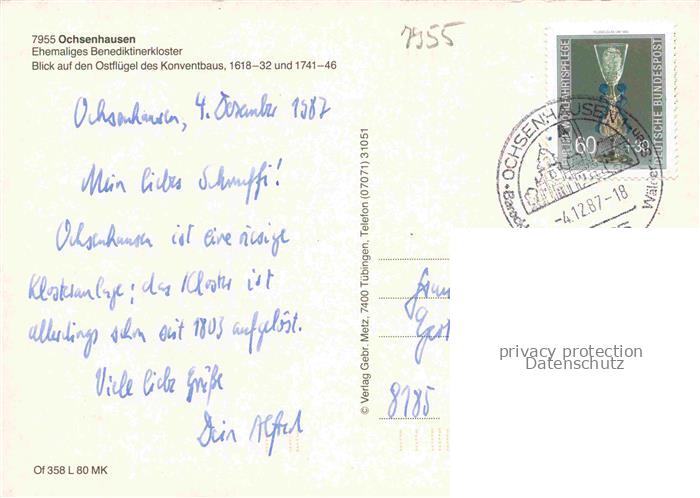 7955 Ochsenhausen
Ehemaliges Benediktinerkloster
Blick auf den Ostflügel des Konventbaus, 1618–32 und 1741–46
7955
WOHLFAHRTSPFLEGE
DEUTSCHE BUNDESPOST
60 +30
OCHSENHAUSEN
-4.12.87-18
Ochsenhausen, 4. Dezember 1987
Mein liebes Schnuffi!
Ochsenhausen ist eine riesige
Klosteranlage; das Kloster ist
allerdings schon seit 1803 aufgelöst.
Viele liebe Grüße
Dein Alfred
© Verlag Gebr. Metz, 7400 Tübingen, Telefon (07071) 31051
8185
privacy protection
Datenschutz
Of 358 L 80 MK